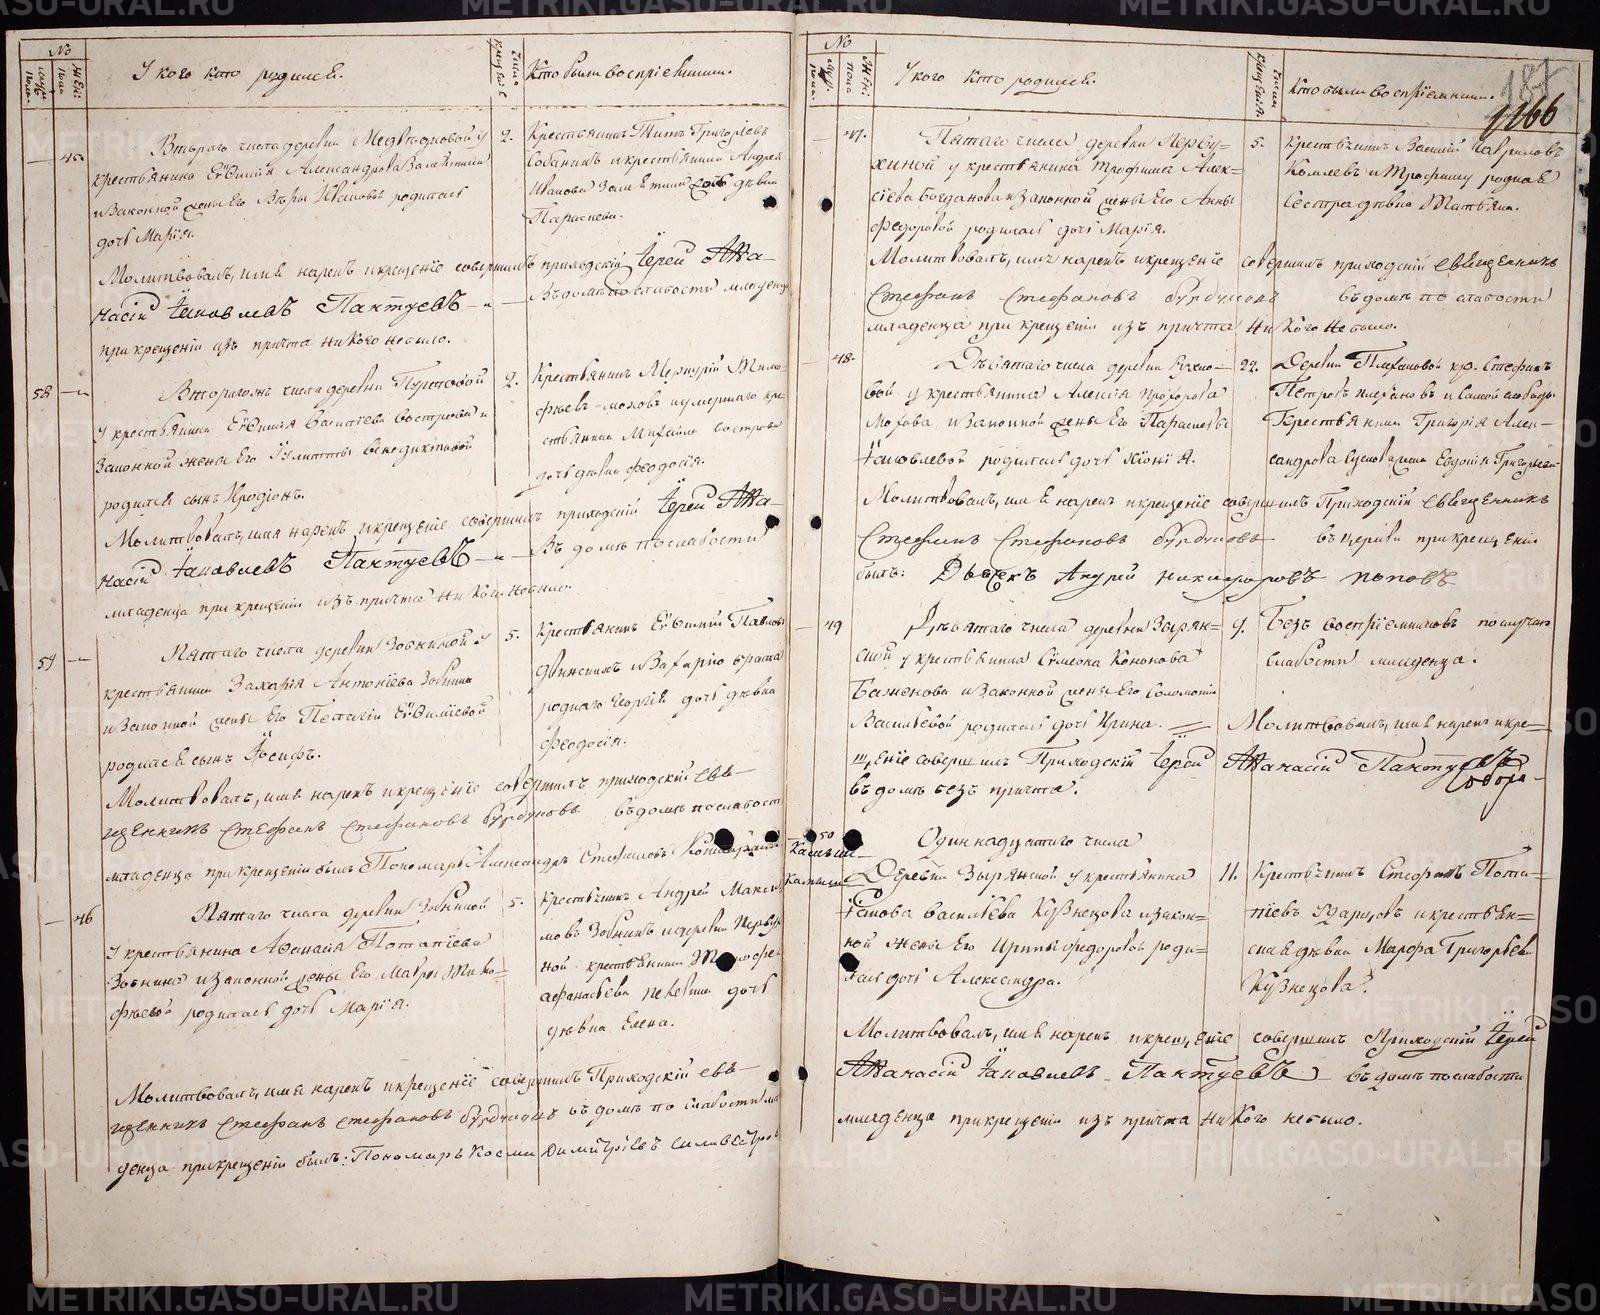 №
муж: пола.
Жен: пола
У кого кто родился.
Число крещенїе
Кто были воспрїемники.
45.
Втораго числа деревни Медвѣдковой у
крестьянина Евѳимїя Александрова Замятина
и законной жены его Вѣры Ивановы родилась
дочь Марїя.
2.
Крестьянинъ Титъ Григорїевъ
Собанинъ и крестьянина Андрея
Иванова Замятина дочь дѣвка
Параскева.
Молитвовалъ, имя нарекъ и крещенїе совершилъ приходскїй Їерей Аѳа-
насїй Їаковлевъ Пактуевъ въ домѣ по слабости младенца
при крещенїи изъ причта никого небыло.
58
Втораго числа деревни Пустовой
у крестьянина Евѳимїя Василїева Вострова и
законной жены его Їулитты Венедиктовой
родился сынъ Иродїонъ.
2.
Крестьянинъ Меркурїй Тимо-
фѣевъ Моховъ и умершаго кре-
стьянина Михайла Вострова
дочь дѣвка Феодосїя.
Молитвовалъ, имя нарекъ и крещенїе совершилъ приходскїй Їерей Аѳа-
насїй Їаковлевъ Пактуевъ въ домѣ по слабости
младенца при крещенїи изъ причта никого небыло.
59
Пятаго числа деревни Зобниной у
крестьянина Захарїя Антонїева Зобнина
и законной жены его Пелагїи Евѳимїевой
родился сынъ Їосифъ.
5.
Крестьянинъ Евѳимїй Павловъ
Двинскихъ и Захарїю брата
роднаго Георгїя дочь дѣвка
Феодосїя.
Молитвовалъ, имя нарекъ и крещенїе совершилъ приходскїй свя-
щенникъ Стефанъ Стефановъ Бурдуковъ въ домѣ по слабост
младенца при крещенїи былъ Пономарь Александръ Стефановъ
46
Пятаго числа деревни Зобниной
у крестьянина Аѳанасїя Потапїева
Зобнина и законной жены его Мавры Тимо-
фѣевой родилась дочь Марїя.
5.
Крестьянинъ Андрей Макси-
мовъ Зобнинъ и деревни Первух
ной крестьянина Тимофея
Афанасьева дочь
дѣвка Елена.
Молитвовалъ, имя нарекъ и крещенїе совершилъ Приходскїй свя-
щенникъ Стефанъ Стефановъ Бурдуковъ въ домѣ по слабости мла
денца при крещенїи былъ: Пономарь Косма Димитрїевъ Силвестров
№
муж: пола.
Жен: пола
У кого кто родился.
Число крещенїя.
Кто были воспрїемники.
187
1266
47.
Пятаго числа деревни Перву-
хиной у крестьянина Трофима Алек-
сїева Богданова и законной жены его Анны
Федоровой родилась дочь Марїя.
5.
Крестьянинъ Василїй Гавриловъ
Комлевъ и Трофиму родная
сестра дѣвка Татьяна.
Молитвовалъ, имя нарекъ и крещенїе совершилъ приходскїй священникъ
Стефанъ Стефановъ Бурдуковъ въ домѣ по слабости
младенца при крещенїи изъ причта никого небыло.
48.
Девятаго числа деревни
у крестьянина Алексїя Прохорова
Мохова и законной жены его Параскевы
Їаковлевой родилась дочь Хїонїя.
22.
Деревни кр. Стефанъ
Петровъ и
Крестьянина Григорїя Алек-
сандрова Евдокїя Григорьева
Молитвовалъ, имя нарекъ и крещенїе совершилъ Приходскїй священникъ
Стефанъ Стефановъ Бурдуковъ въ церкви при крещенїи
былъ: Дьячекъ Андрей Никифоровъ Поповъ
49
Девятаго числа деревни Зырян-
ской у крестьянина Симеона Кононова
Баженова и законной жены его Соломонїи
Васильевой родилась дочь Ирина.
9.
Безъ воспрїемниковъ по случаю
слабости младенца.
Молитвовалъ, имя нарекъ и кре-
щенїе совершилъ Приходскїй Їерей Аѳанасїй Пактуевъ
въ домѣ безъ причта.
50
Одиннадцатаго числа
Деревни Зырянской у крестьянина
Їакова Василїева Кузнецова и закон-
ной жены его Ирины Федоровой роди-
лась дочь Александра.
11.
Крестьянинъ Стефанъ Пота-
пїевъ Ударцовъ и крестьян-
ская дѣвка Марфа Григорьева
Кузнецова.
Молитвовалъ, имя нарекъ и крещенїе совершилъ Приходскїй Їерей
Аѳанасїй Їаковлевъ Пактуевъ въ домѣ по слабости
младенца при крещенїи изъ причта никого небыло.
METRIKI.GASO-URAL.RU